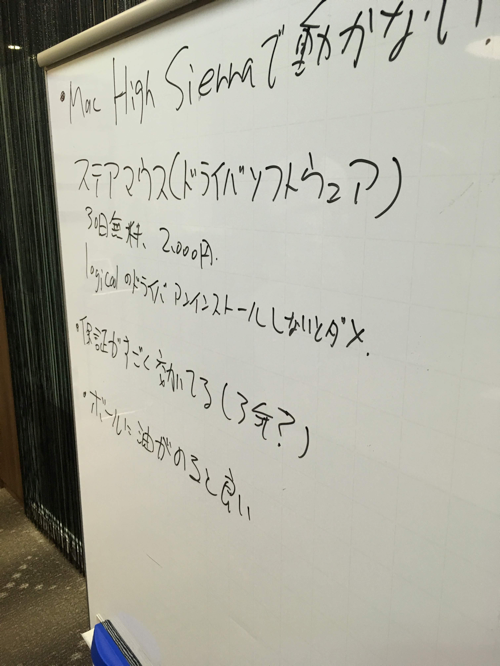 ・Mac High Sierraで動かない!
ステアマウス(ドライバソフトウェア)
30日無料、2,000円.
logicalのドライバアンインストールしないとダメ.
・保証がすごく効いてる(3年?)
・ボールに油がのると良い